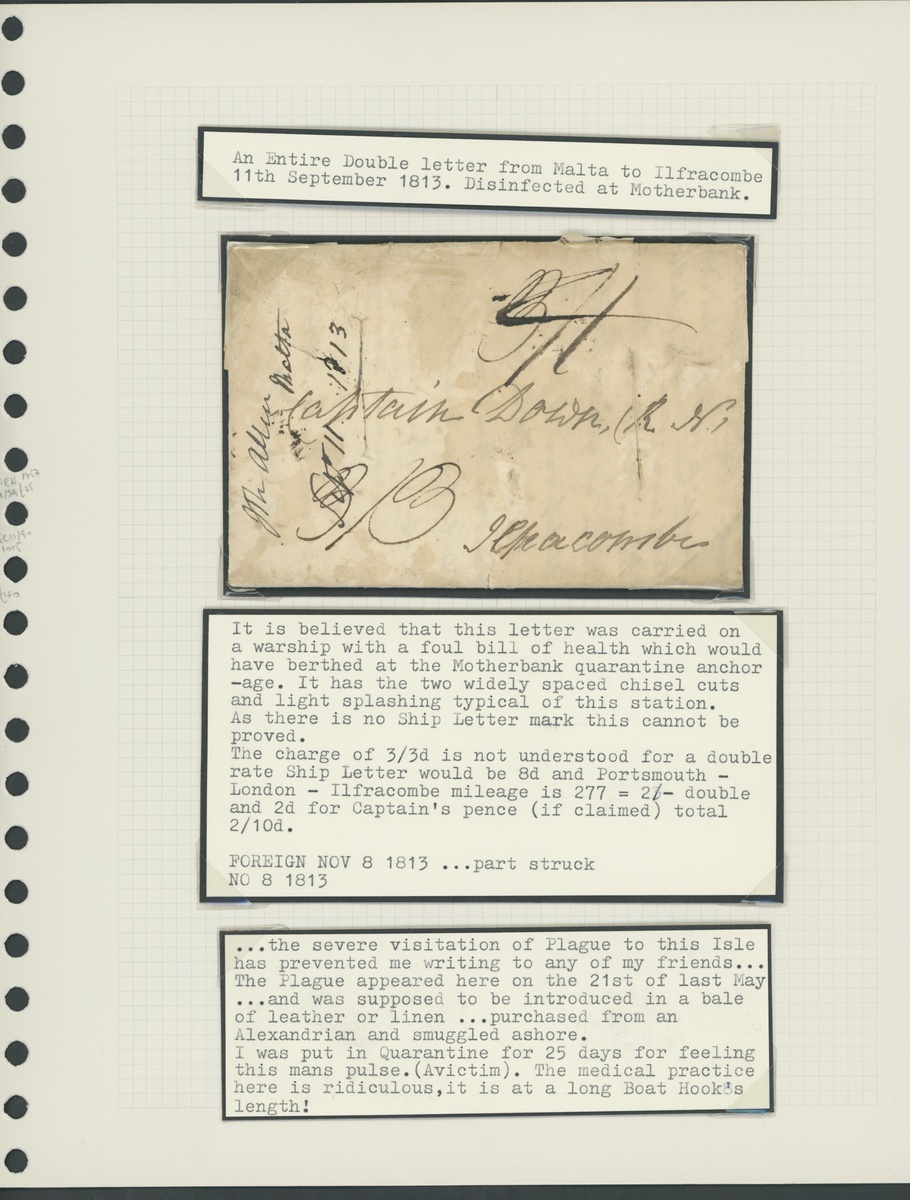 An Entire Double letter from Malta to Ilfracombe
11th September 1813. Disinfected at Motherbank.
Malta
1813
Captain Down, R. N.
3/3
Ilfracombe
It is believed that this letter was carried on
a warship with a foul bill of health which would
have berthed at the Motherbank quarantine anchor
-age. It has the two widely spaced chisel cuts
and light splashing typical of this station.
As there is no Ship Letter mark this cannot be
proved.
The charge of 3/3d is not understood for a double
rate Ship Letter would be 8d and Portsmouth -
London - Ilfracombe mileage is 277 = 2/- double
and 2d for Captain's pence (if claimed) total
2/10d.
FOREIGN NOV 8 1813 ...part struck
NO 8 1813
...the severe visitation of Plague to this Isle
has prevented me writing to any of my friends...
The Plague appeared here on the 21st of last May
...and was supposed to be introduced in a bale
of leather or linen ...purchased from an
Alexandrian and smuggled ashore.
I was put in Quarantine for 25 days for feeling
this mans pulse.(Avictim). The medical practice
here is ridiculous,it is at a long Boat Hooks
length!